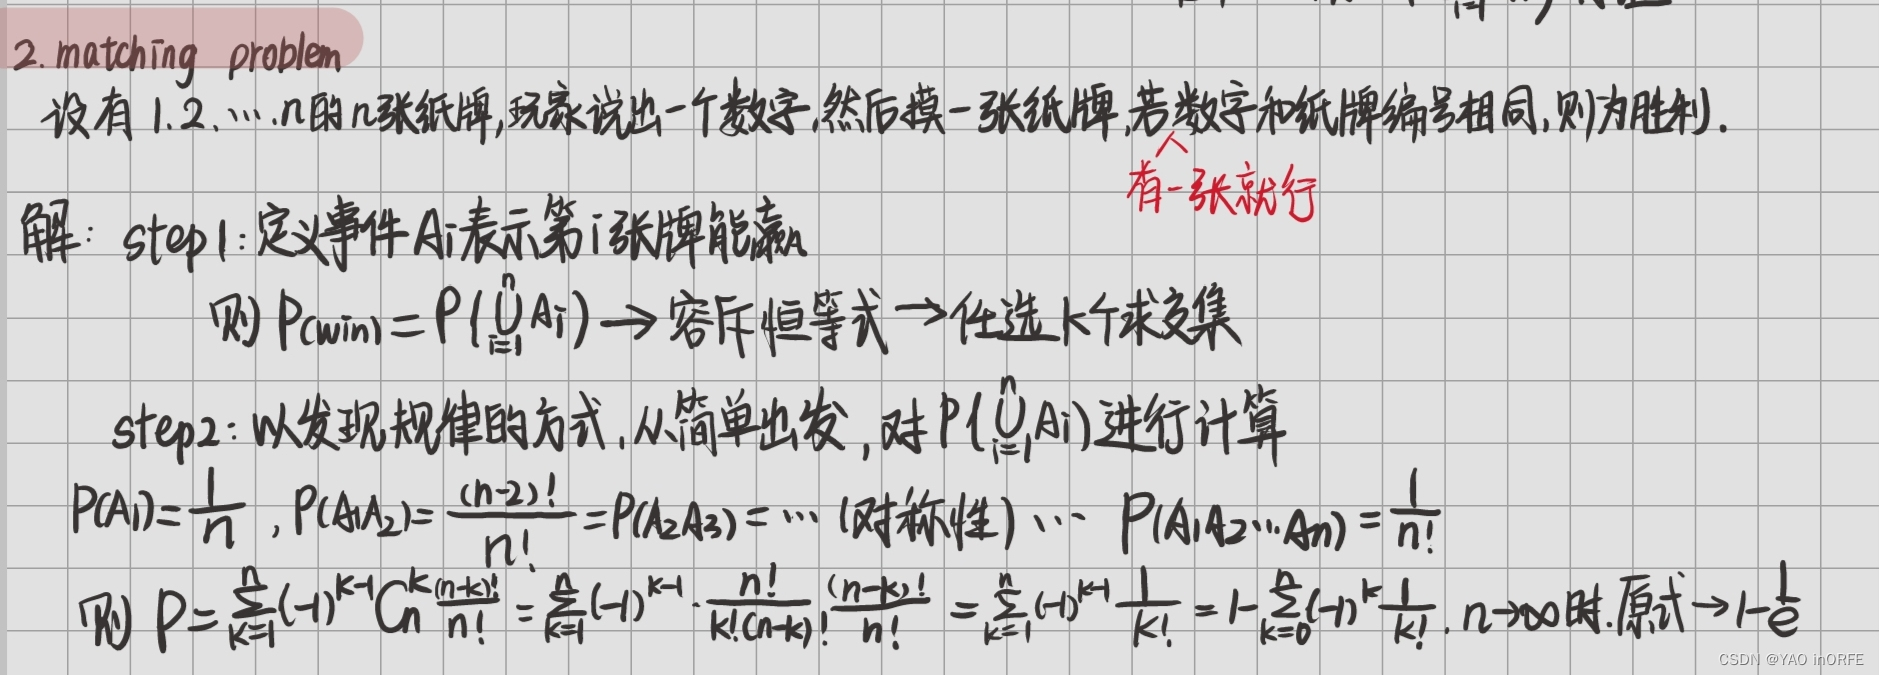 2. matching problem
设有 1.2.….n的n张纸牌,玩家说出一个数字,然后摸一张纸牌,若数字和纸牌编号相同,则为胜利.
有一张就行
解: step1:定义事件Ai表示第i张牌能赢
则 P(win) = P(⋃_{i=1}^{n} Ai) → 容斥恒等式 → 任选k个求交集
step2: 以发现规律的方式,从简单出发,对P(⋃_{i=1}^{n} Ai)进行计算
P(A1)=1/n , P(A1A2)=(n-2)!/n! =P(A2A3)=…(对称性)… P(A1A2…An)=1/n!
则 P=∑_{k=1}^{n}(-1)^{k-1} C_n^k (n-k)!/n! = ∑_{k=1}^{n}(-1)^{k-1}·n!/(k!(n-k)!) (n-k)!/n! = ∑_{k=1}^{n}(-1)^{k-1} 1/k! = 1-∑_{k=0}^{n}(-1)^k 1/k! . n→∞时.原式→1-1/e
CSDN @YAO inORFE